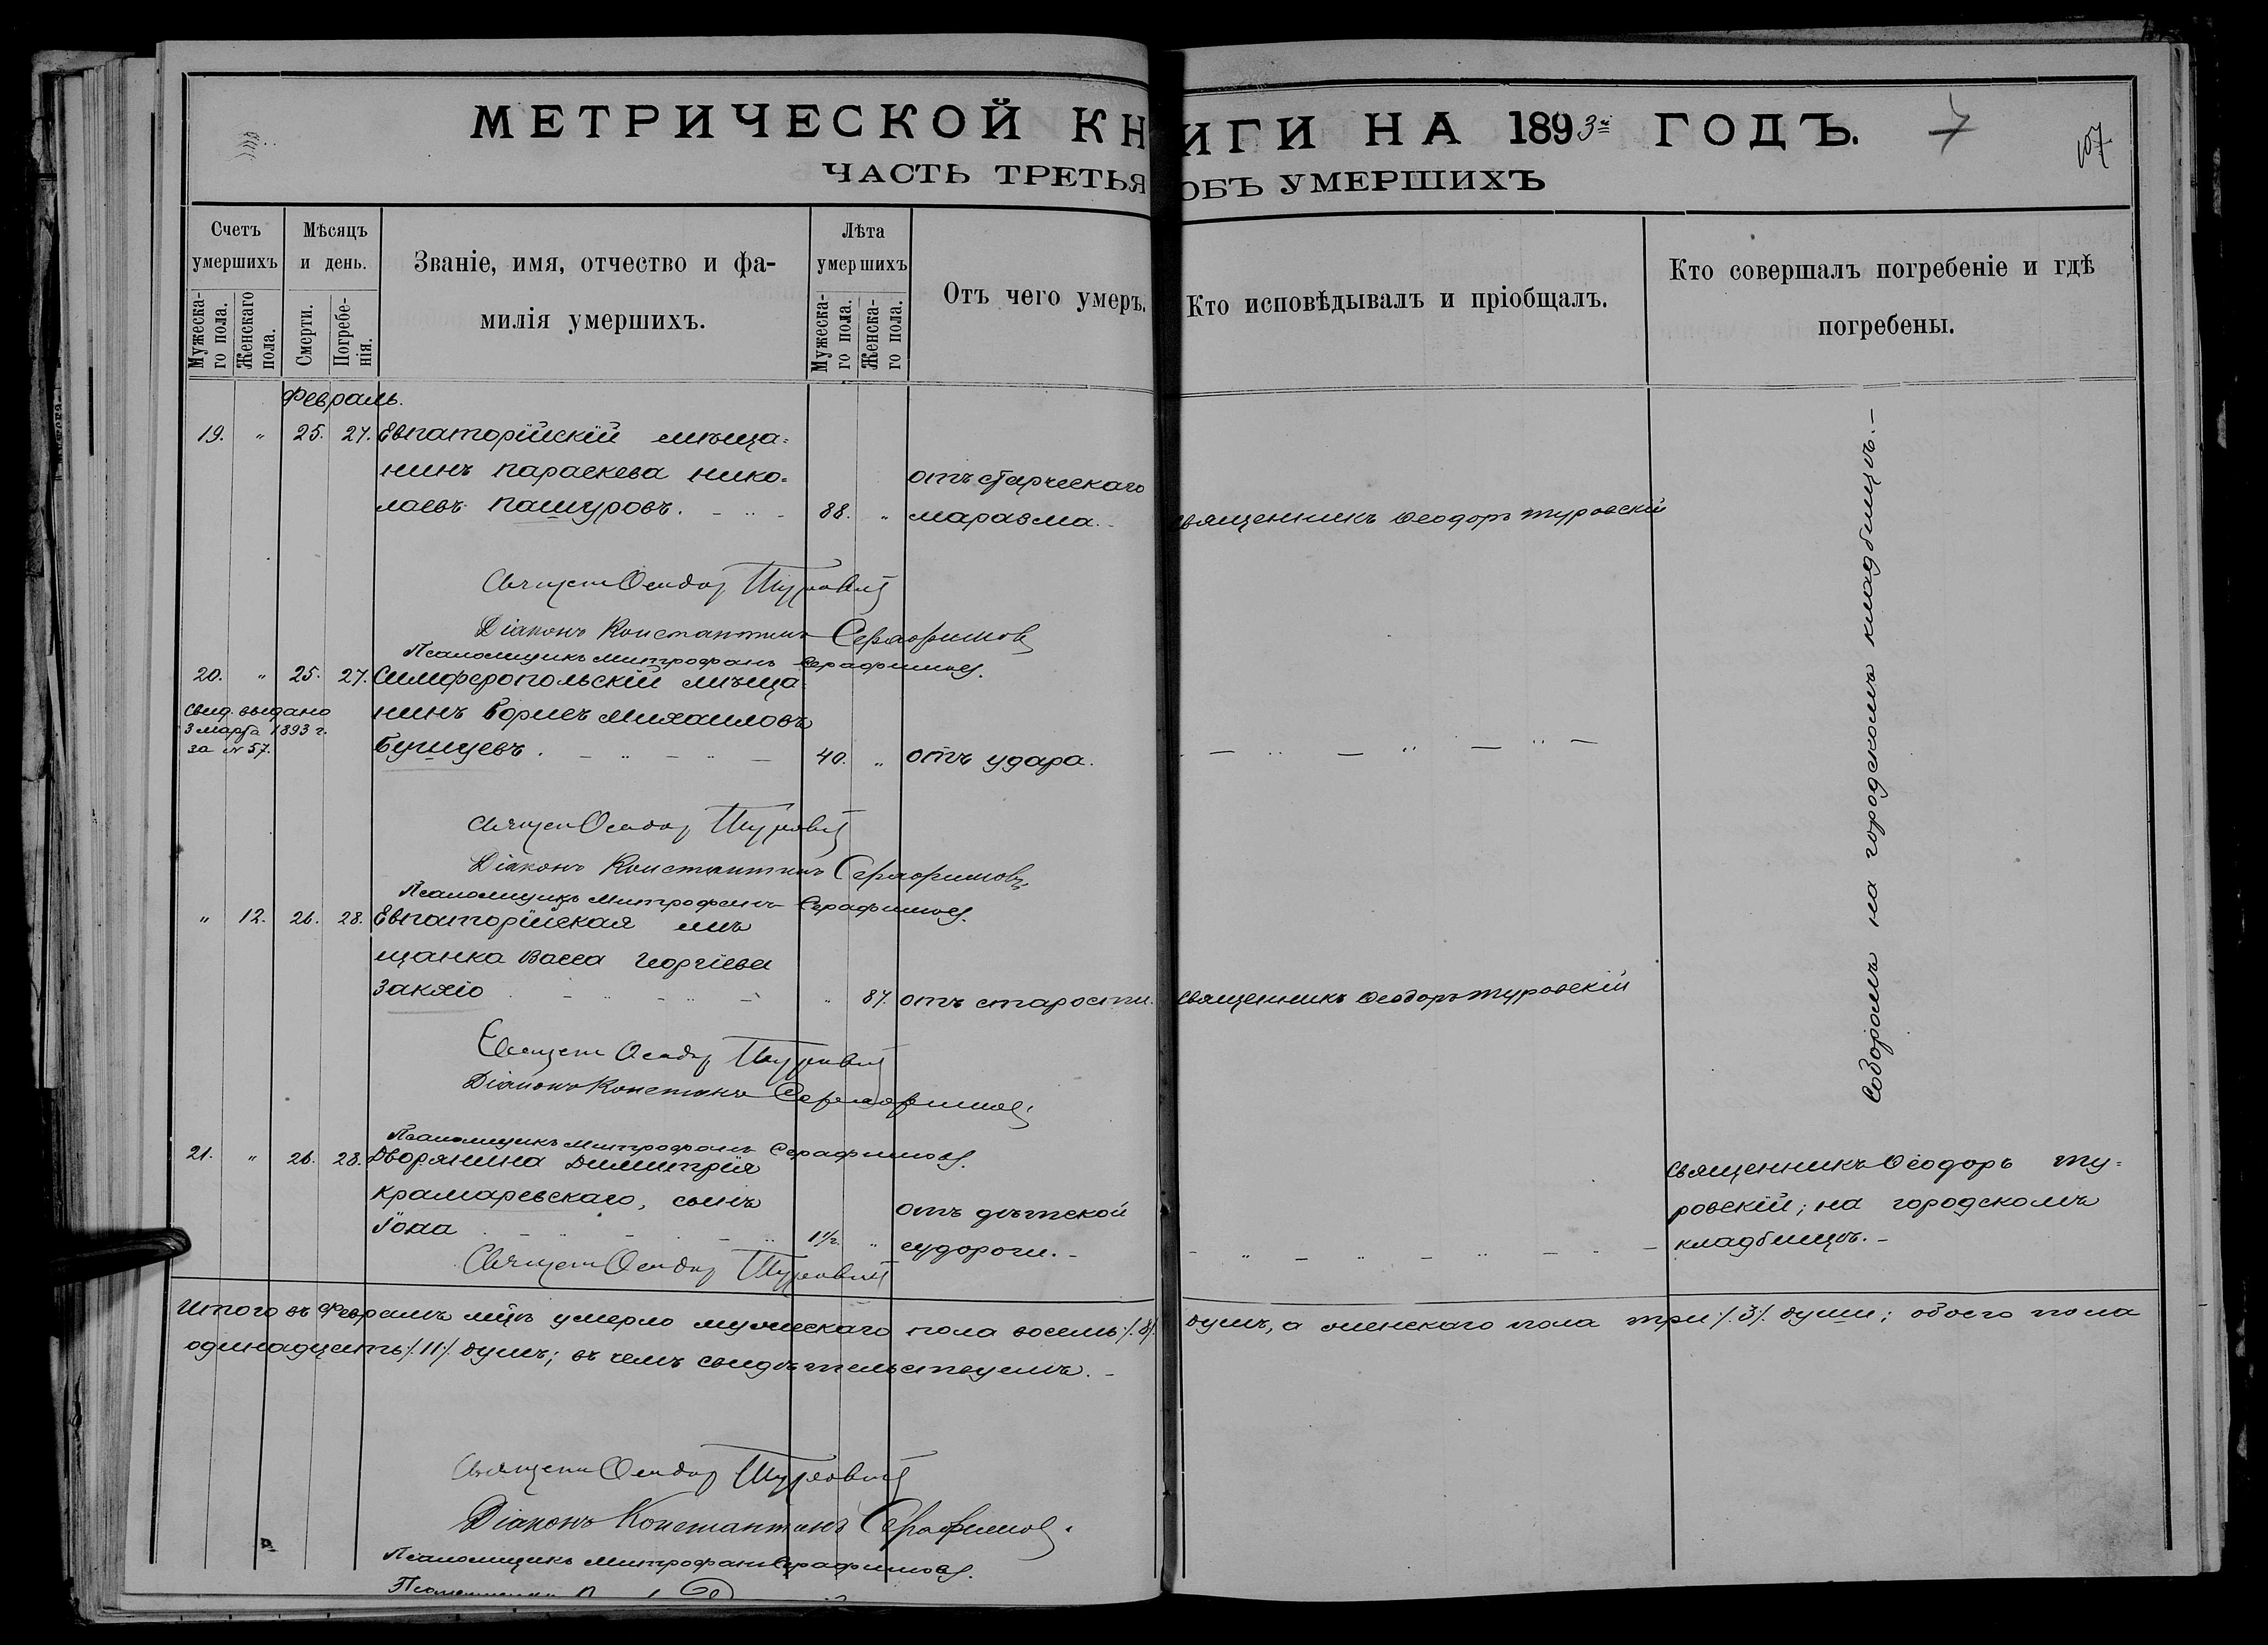 МЕТРИЧЕСКОЙ КНИГИ НА 1893й ГОДЪ. 7
107
ЧАСТЬ ТРЕТЬЯ ОБЪ УМЕРШИХЪ
Счетъ умершихъ
Мужескаго пола.
Женскаго пола.
Мѣсяцъ и день.
Смерти.
Погребенія.
Званіе, имя, отчество и фа-
милія умершихъ.
Лѣта умершихъ
Мужеска-го пола.
Женска-го пола.
Отъ чего умеръ.
Кто исповѣдывалъ и пріобщалъ.
Кто совершалъ погребеніе и гдѣ
погребены.
Февраль.
19. " 25. 27. Евпаторійскій мѣща=
нинъ Параскева Нико=
лаевъ Пашуровъ. 88. "
отъ старческаго
маразма.
Священникъ Ѳеодоръ Туровскій
Соборомъ на городскомъ кладбищѣ.
Священ Ѳеодор Туровскій
Діаконъ Константинъ Серафимовъ
Псаломщикъ Митрофанъ Серафимовъ.
20. " 25. 27. Симферопольскій мѣща=
нинъ Борисъ Михаиловъ
Бушуевъ. 40. " отъ удара.
Свид. выдано
3 марта 1893 г.
за № 57.
Священ Ѳеодор Туровскій
Діаконъ Константинъ Серафимовъ
Псаломщикъ Митрофанъ Серафимовъ.
" 12. 26. 28. Евпаторійская мѣ
щанка Васса Георгіева
Закхіо " 87. отъ старости. Священникъ Ѳеодоръ Туровскій
Священ Ѳеодор Туровскій
Діаконъ Констанъ Серафимовъ
Псаломщикъ Митрофанъ Серафимовъ.
21. " 26. 28. Дворянина Димитрія
Крамаревскаго, сынъ
Іона 1½. "
отъ дѣтской
судороги.
Священникъ Ѳеодоръ Ту=
ровскій; на городскомъ
кладбищѣ.
Священ Ѳеодор Туровскій
Итого въ Февралѣ мцѣ умерло мужескаго пола восемь /.8/. душъ, а женскаго пола три /.3/. души; обоего пола
одинадцать /.11/. душъ; въ чемъ свидѣтельствуемъ.
Священ Ѳеодор Туровскій
Діаконъ Константинъ Серафимовъ.
Псаломщикъ Митрофанъ Серафимовъ.